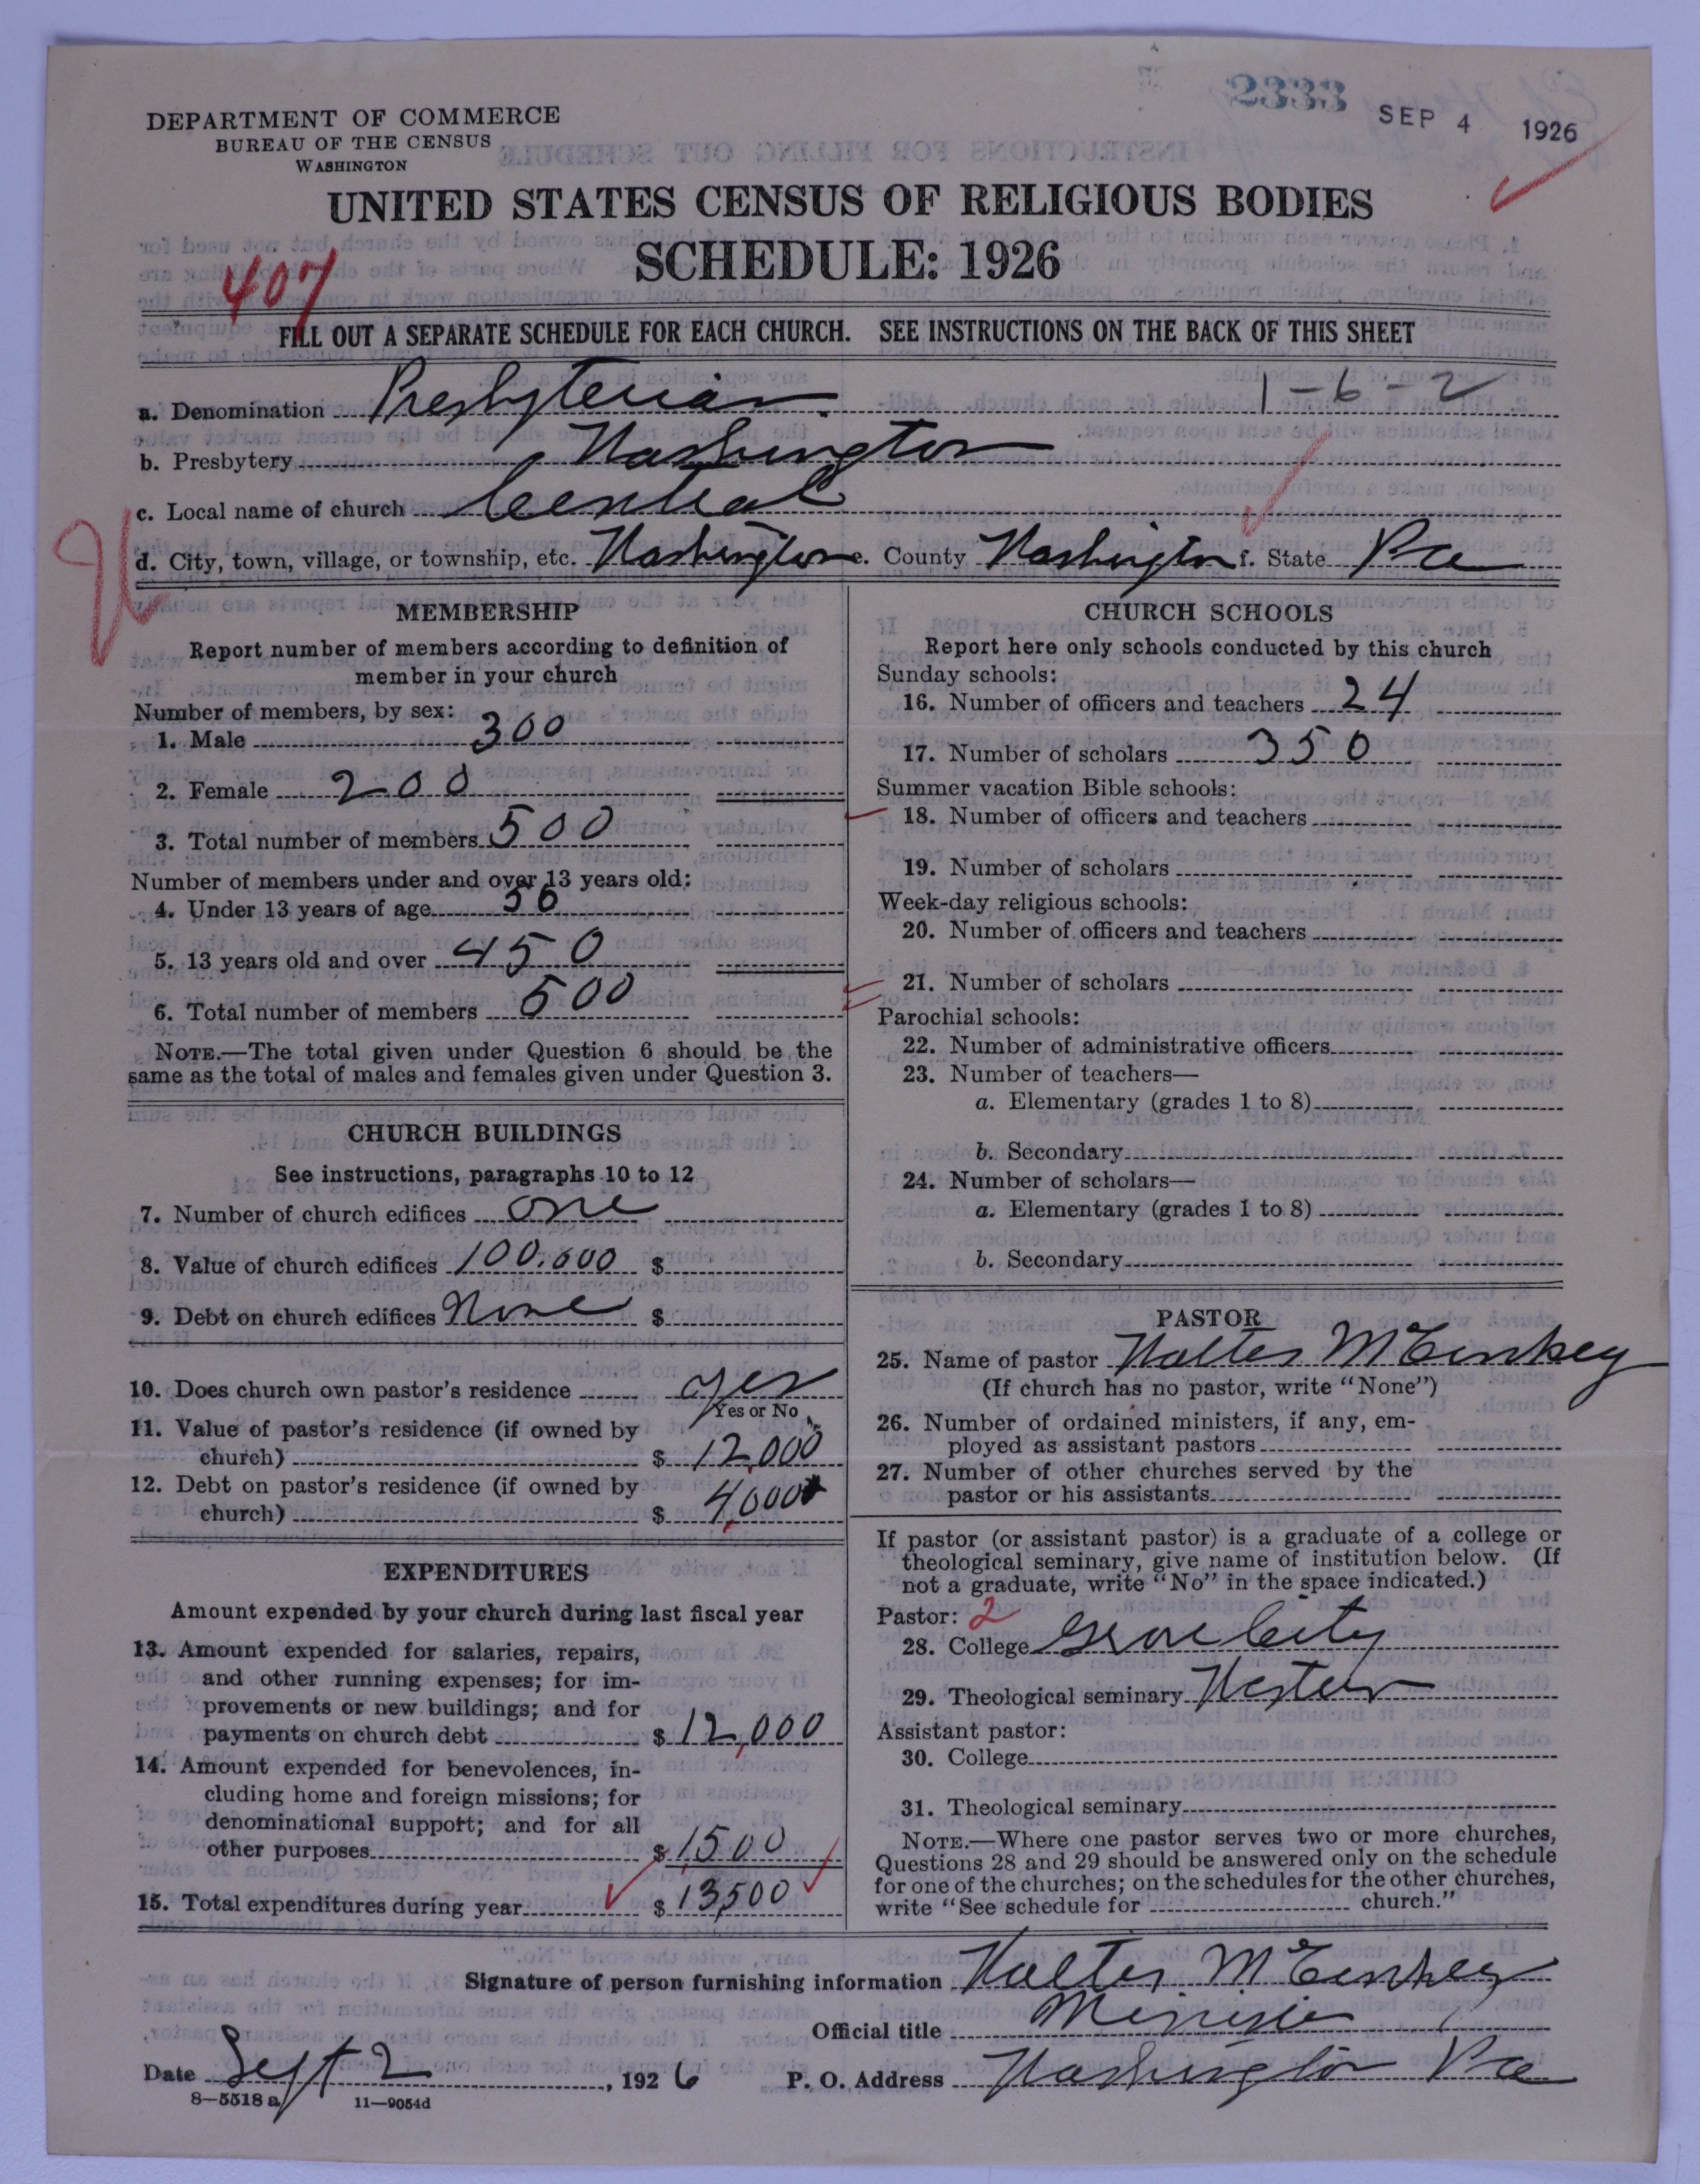 2333 SEP 4 1926
DEPARTMENT OF COMMERCE
BUREAU OF THE CENSUS
WASHINGTON
UNITED STATES CENSUS OF RELIGIOUS BODIES
SCHEDULE: 1926
407
FILL OUT A SEPARATE SCHEDULE FOR EACH CHURCH. SEE INSTRUCTIONS ON THE BACK OF THIS SHEET
a. Denomination Presbyterian. 1-6-2
b. Presbytery Washington
c. Local name of church Central
d. City, town, village, or township, etc. Washington e. County Washington f. State Pa
MEMBERSHIP
Report number of members according to definition of
member in your church
Number of members, by sex:
1. Male 300
2. Female 200
3. Total number of members 500
Number of members under and over 13 years old:
4. Under 13 years of age 50
5. 13 years old and over 450
6. Total number of members 500
NOTE.—The total given under Question 6 should be the
same as the total of males and females given under Question 3.
CHURCH BUILDINGS
See instructions, paragraphs 10 to 12
7. Number of church edifices one
8. Value of church edifices 100.000 $
9. Debt on church edifices None $
10. Does church own pastor's residence yes
Yes or No
11. Value of pastor's residence (if owned by
church) $ 12,000
12. Debt on pastor's residence (if owned by
church) $ 4,000
EXPENDITURES
Amount expended by your church during last fiscal year
13. Amount expended for salaries, repairs,
and other running expenses; for im-
provements or new buildings; and for
payments on church debt $ 12,000
14. Amount expended for benevolences, in-
cluding home and foreign missions; for
denominational support; and for all
other purposes $ 1,500
15. Total expenditures during year $ 13,500
CHURCH SCHOOLS
Report here only schools conducted by this church
Sunday schools:
16. Number of officers and teachers 24
17. Number of scholars 350
Summer vacation Bible schools:
18. Number of officers and teachers
19. Number of scholars
Week-day religious schools:
20. Number of officers and teachers
21. Number of scholars
Parochial schools:
22. Number of administrative officers
23. Number of teachers—
a. Elementary (grades 1 to 8)
b. Secondary
24. Number of scholars—
a. Elementary (grades 1 to 8)
b. Secondary
PASTOR
25. Name of pastor Walter McClinkey
(If church has no pastor, write "None")
26. Number of ordained ministers, if any, em-
ployed as assistant pastors
27. Number of other churches served by the
pastor or his assistants
If pastor (or assistant pastor) is a graduate of a college or
theological seminary, give name of institution below. (If
not a graduate, write "No" in the space indicated.)
Pastor: 2
28. College Grove City
29. Theological seminary Western
Assistant pastor:
30. College
31. Theological seminary
NOTE.—Where one pastor serves two or more churches,
Questions 28 and 29 should be answered only on the schedule
for one of the churches; on the schedules for the other churches,
write "See schedule for church."
Signature of person furnishing information Walter McClinkey
Official title Minister
Date Sept 2, 1926 P. O. Address Washington Pa
8—5518 a 11—9054d